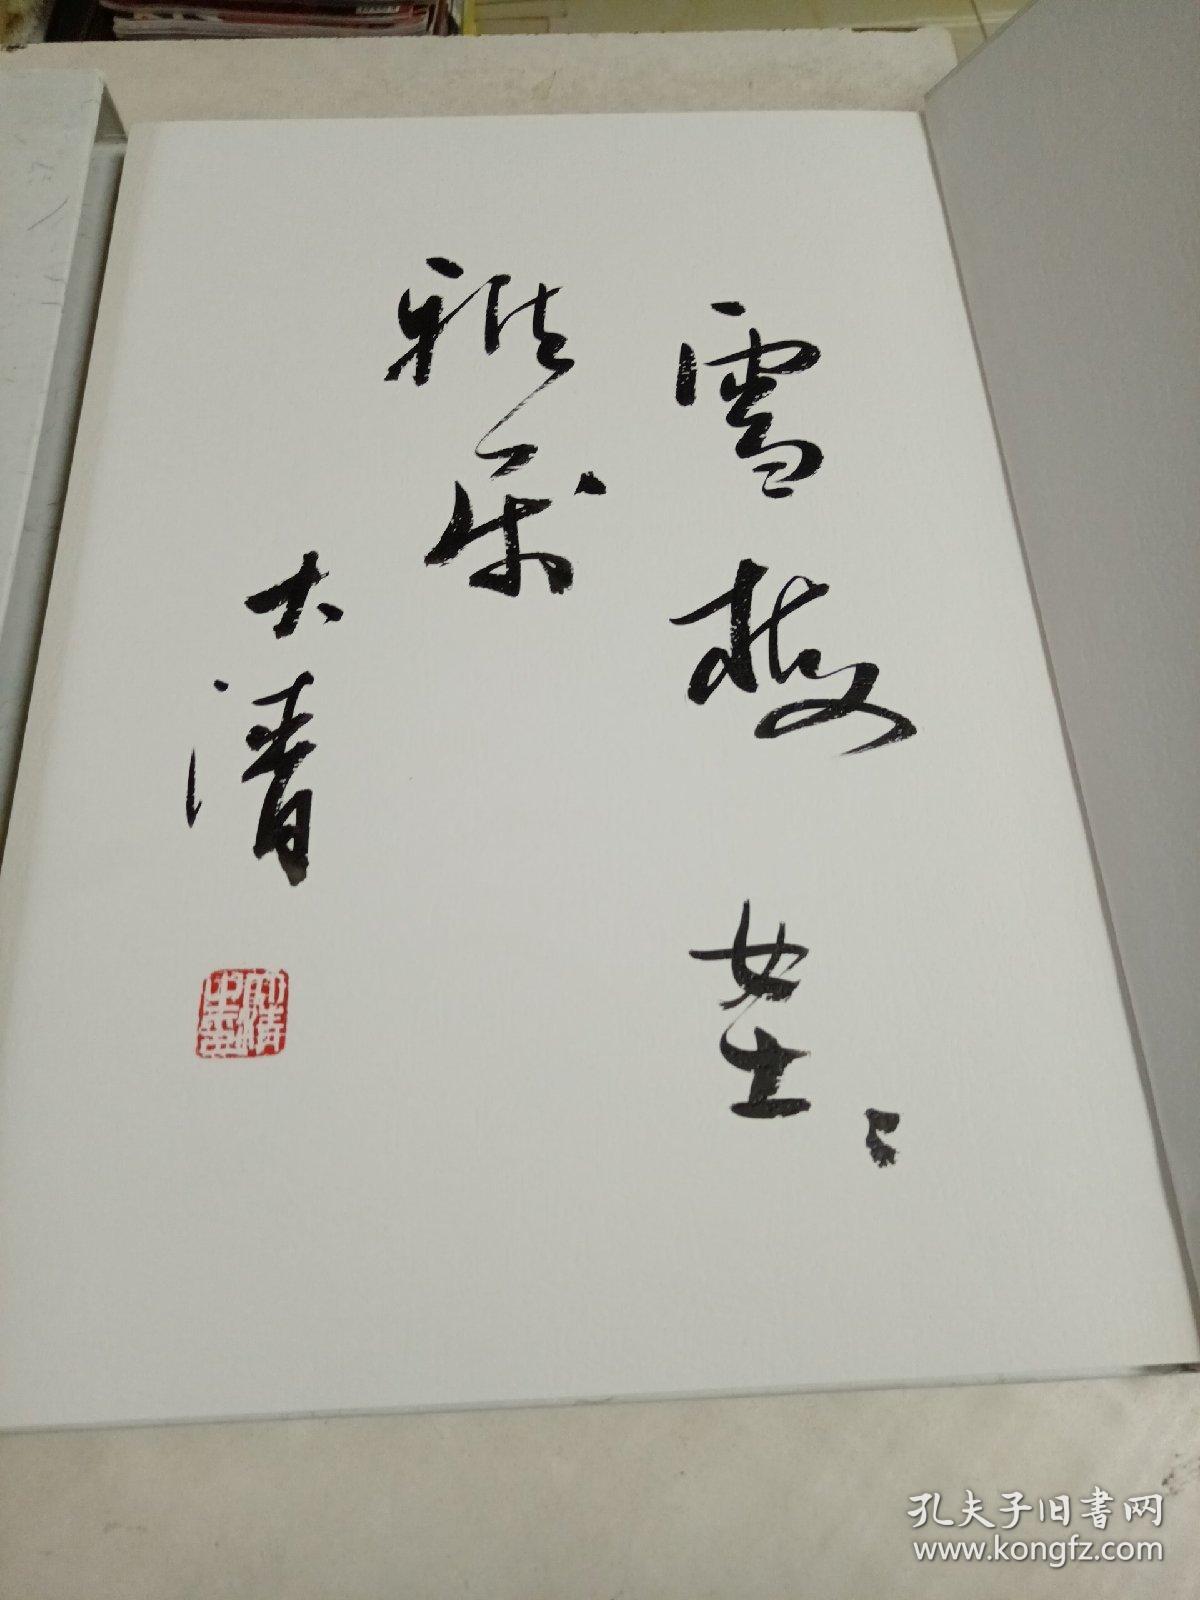 雪梅女士
雅属
大清
孔夫子旧書网
www.kongfz.com